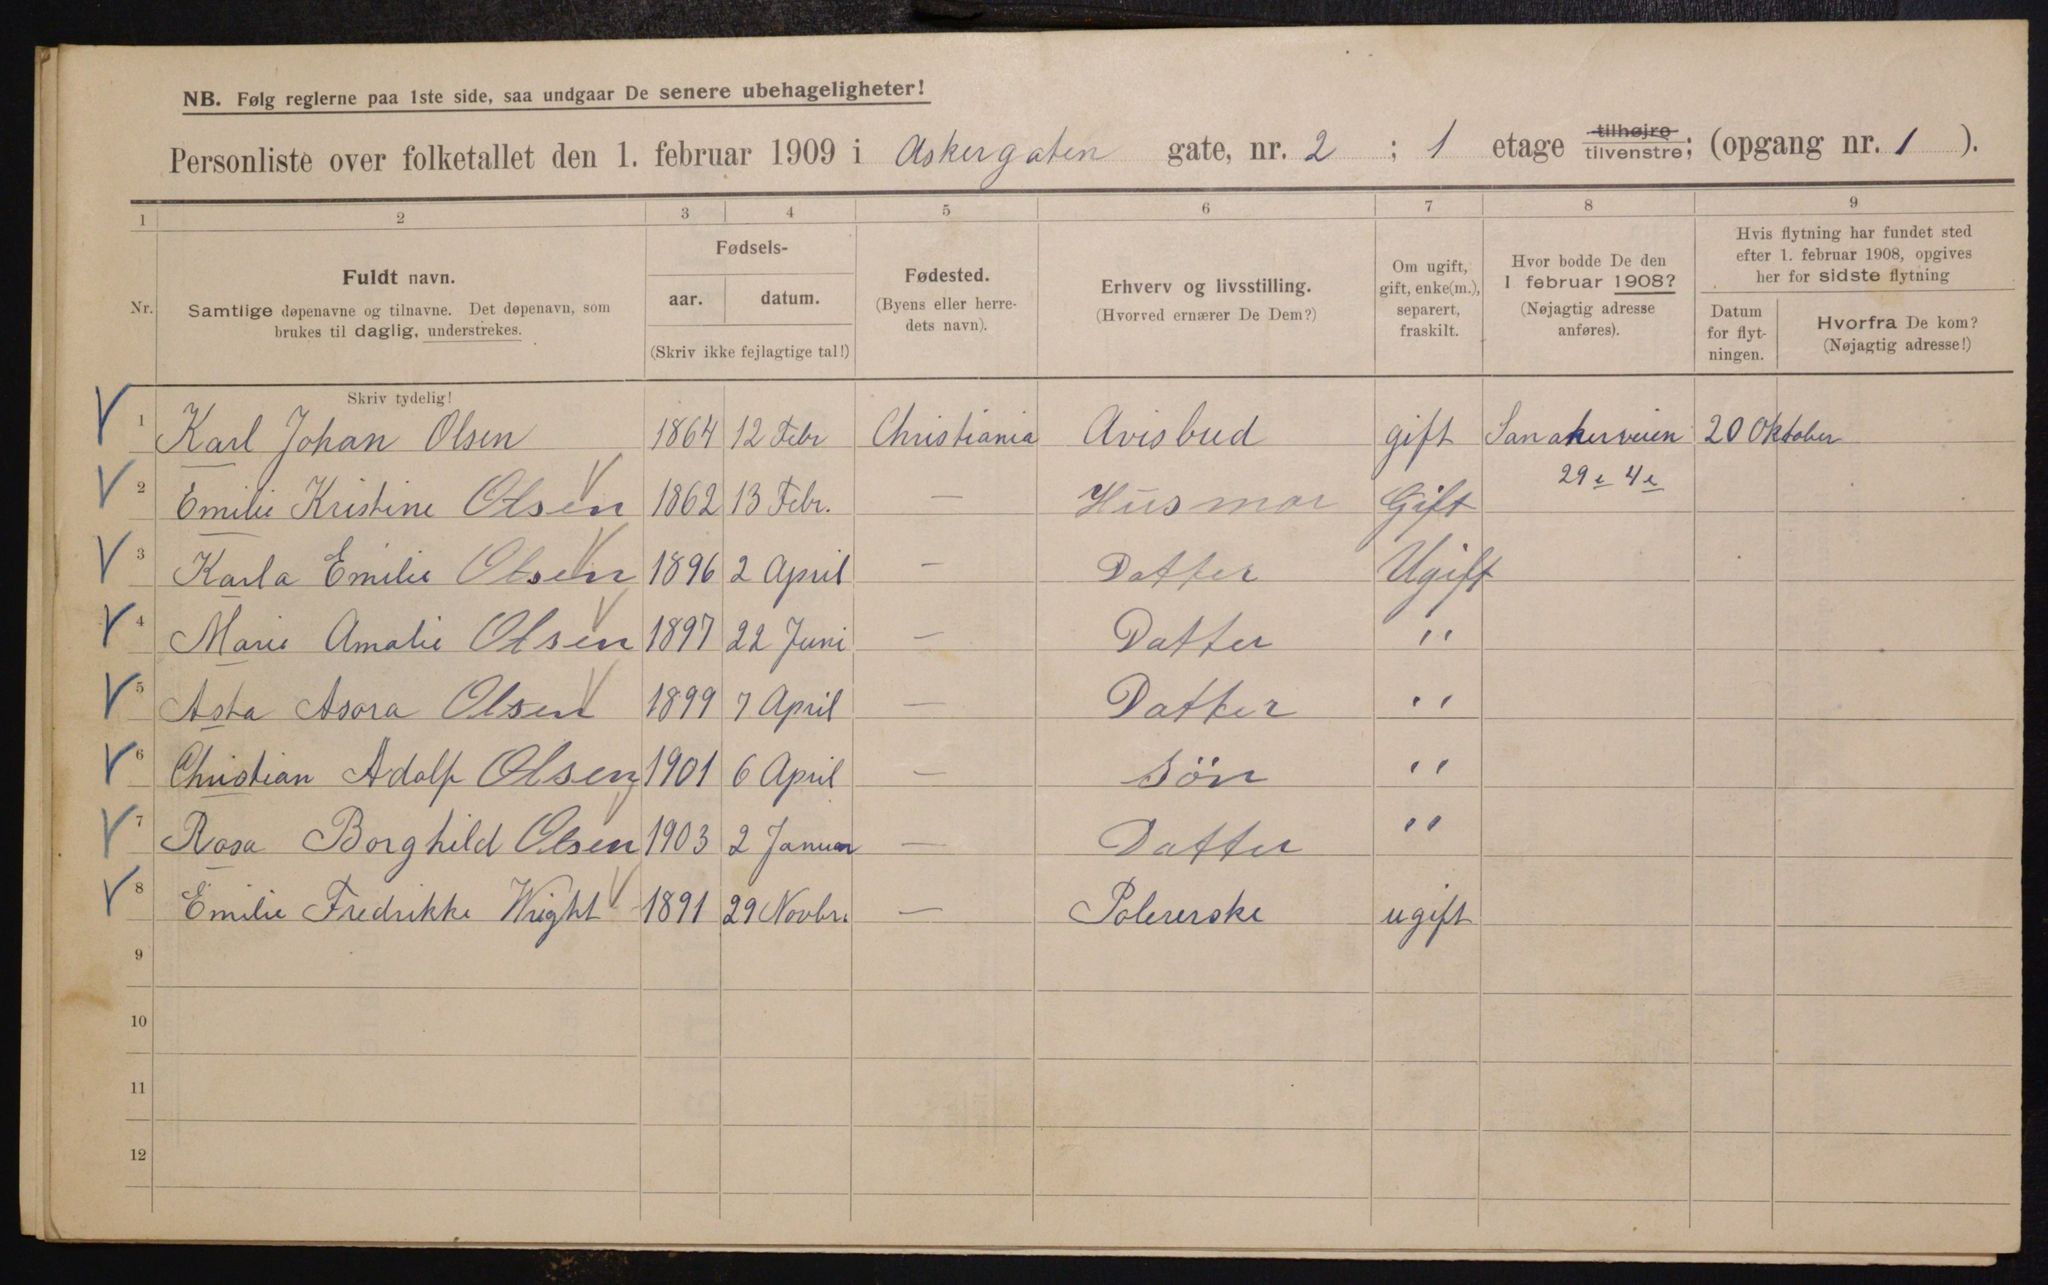 NB. Følg reglerne paa 1ste side, saa undgaar De senere ubehageligheter!
Personliste over folketallet den 1. februar 1909 i Askergaten gate, nr. 2 ; 1 etage tilhøjre tilvenstre; (opgang nr. 1 ).
1 2 3 4 5 6 7 8 9
Nr.
Fuldt navn.
Samtlige døpenavne og tilnavne. Det døpenavn, som
brukes til daglig, understrekes.
Fødsels-
aar. datum.
(Skriv ikke fejlagtige tal!)
Fødested.
(Byens eller herre-
dets navn).
Erhverv og livsstilling.
(Hvorved ernærer De Dem?)
Om ugift,
gift, enke(m.),
separert,
fraskilt.
Hvor bodde De den
1 februar 1908?
(Nøjagtig adresse
anføres).
Hvis flytning har fundet sted
efter 1. februar 1908, opgives
her for sidste flytning
Datum
for flyt-
ningen.
Hvorfra De kom?
(Nøjagtig adresse!)
Skriv tydelig!
1 Karl Johan Olsen 1864 12 Febr Christiania Avisbud gift Sanakerveien 20 Oktober
29 e 4 e
2 Emilie Kristine Olsen 1862 13 Febr. — Husmor Gift
3 Karla Emilie Olsen 1896 2 April — Datter Ugift
4 Marie Amalie Olsen 1897 22 Juni — Datter "
5 Asta Asora Olsen 1899 7 April — Datter "
6 Christian Adolf Olsen 1901 6 April — Sön "
7 Rosa Borghild Olsen 1903 2 Januar — Datter "
8 Emilie Fredrikke Wright 1891 29 Novbr. — Polererske ugift
9
10
11
12